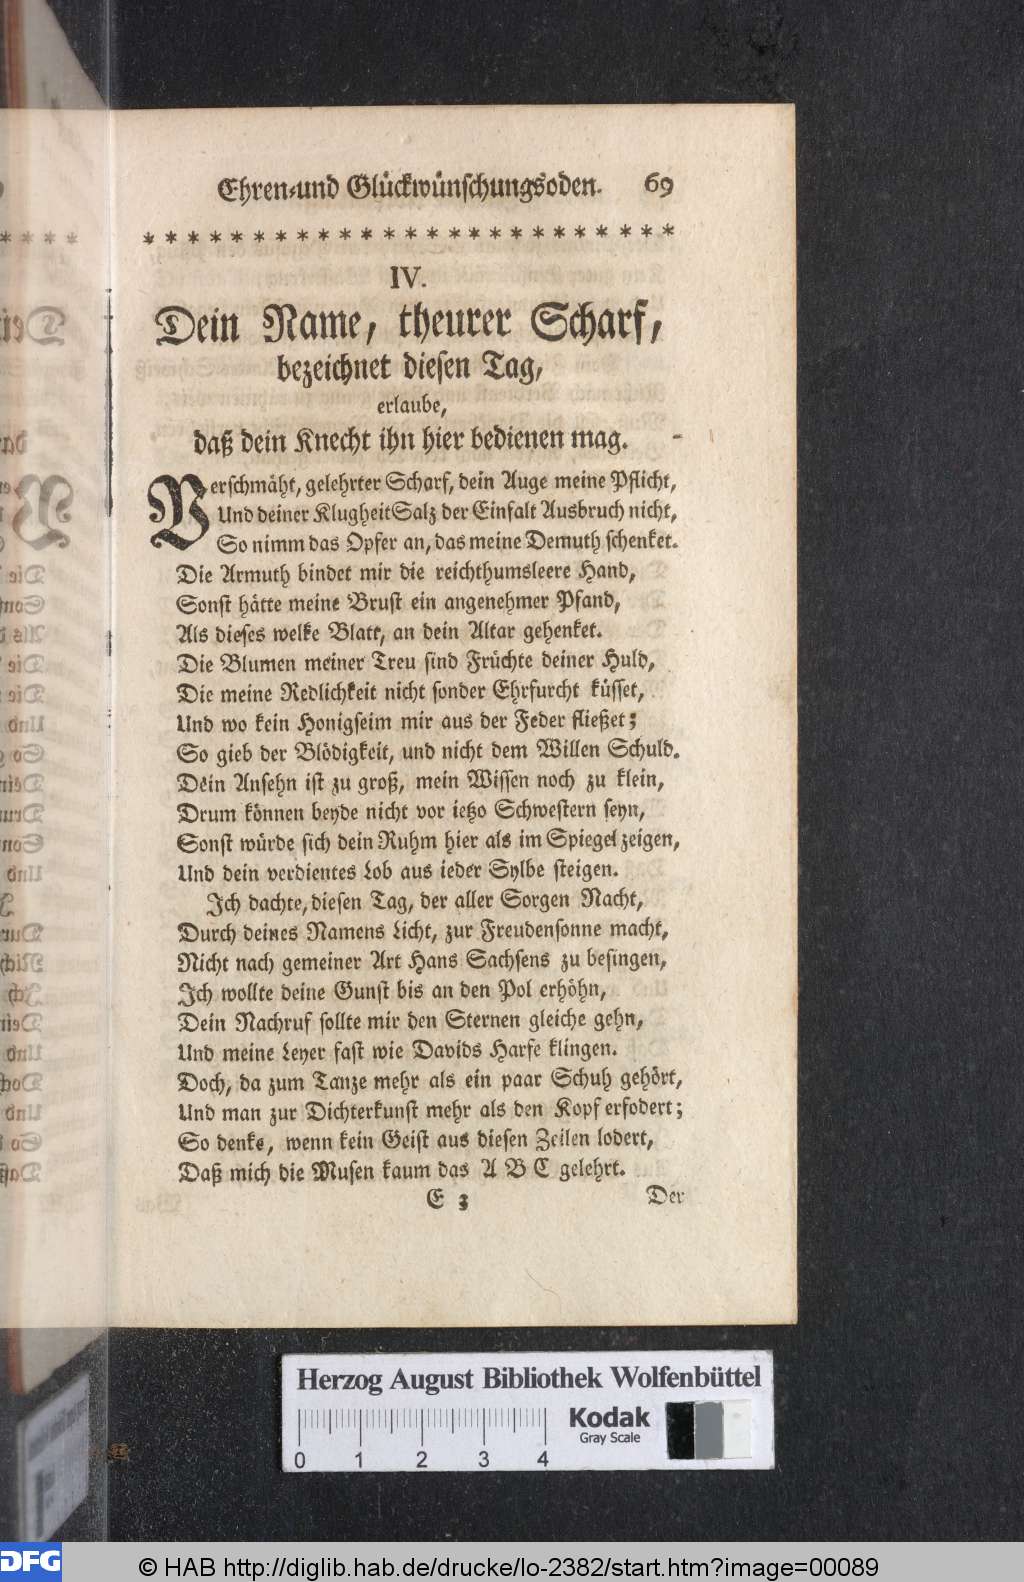 Ehren-und Glückwünschungsoden. 69
* * * * * * * * * * * * * * * * * * * * * * * * *
IV.
Dein Name, theurer Scharf,
bezeichnet diesen Tag,
erlaube,
daß dein Knecht ihn hier bedienen mag.
Verschmäht, gelehrter Scharf, dein Auge meine Pflicht,
Und deiner Klugheit Salz der Einfalt Ausbruch nicht,
So nimm das Opfer an, das meine Demuth schenket.
Die Armuth bindet mir die reichthumsleere Hand,
Sonst hätte meine Brust ein angenehmer Pfand,
Als dieses welke Blatt, an dein Altar gehenket.
Die Blumen meiner Treu sind Früchte deiner Huld,
Die meine Redlichkeit nicht sonder Ehrfurcht küsset,
Und wo kein Honigseim mir aus der Feder fließet;
So gieb der Blödigkeit, und nicht dem Willen Schuld.
Dein Ansehn ist zu groß, mein Wissen noch zu klein,
Drum können beyde nicht vor ietzo Schwestern seyn,
Sonst würde sich dein Ruhm hier als im Spiegel zeigen,
Und dein verdientes Lob aus ieder Sylbe steigen.
Ich dachte, diesen Tag, der aller Sorgen Nacht,
Durch deines Namens Licht, zur Freudensonne macht,
Nicht nach gemeiner Art Hans Sachsens zu besingen,
Ich wollte deine Gunst bis an den Pol erhöhn,
Dein Nachruf sollte mir den Sternen gleiche gehn,
Und meine Leyer fast wie Davids Harfe klingen.
Doch, da zum Tanze mehr als ein paar Schuh gehört,
Und man zur Dichterkunst mehr als den Kopf erfodert;
So denke, wenn kein Geist aus diesen Zeilen lodert,
Daß mich die Musen kaum das A B C gelehrt.
E 3 Der
Herzog August Bibliothek Wolfenbüttel
Kodak
Gray Scale
0 1 2 3 4
DFG
© HAB http://diglib.hab.de/drucke/lo-2382/start.htm?image=00089